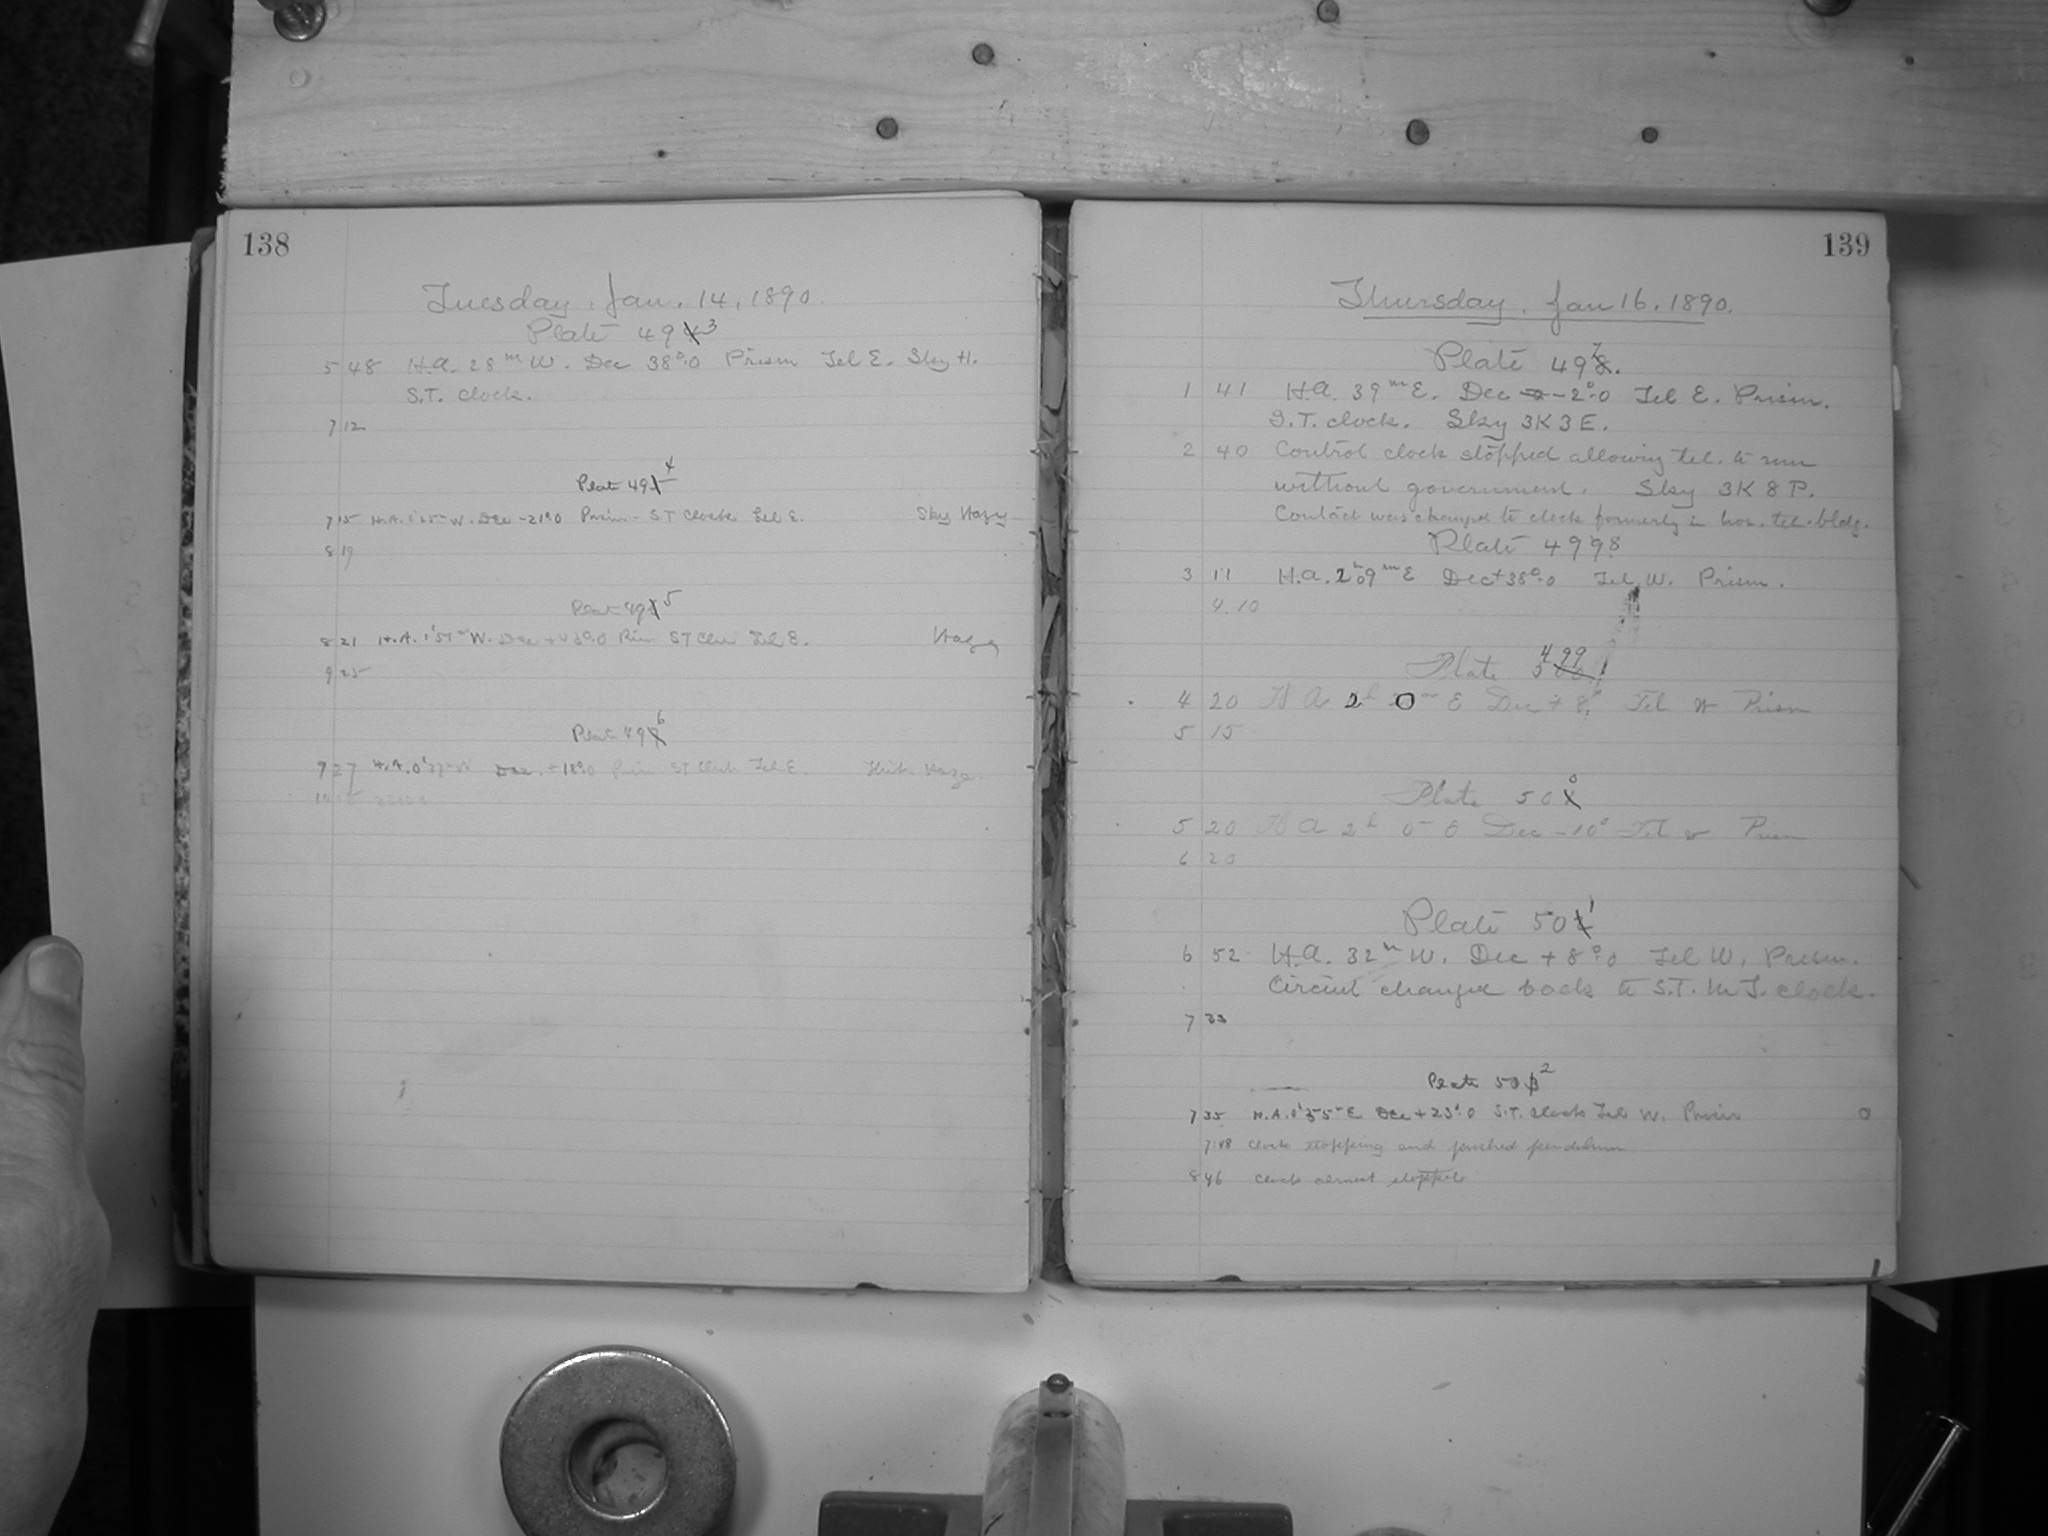 138
Tuesday. Jan. 14, 1890.
Plate 494 3
5 48 H.A. 28m W. Dec 38°.0 Prism Tel E. Sky H.
S.T. clock.
7 12
Plate 495 4
7 15 H.A. 1h25m W. Dec -21°.0 Prism - S T Clock Tel E. Sky Hazy
8 19
Plate 49 5
8 21 H.A. 1h W. Dec Tel E. Hazy
9 25
Plate 49 6
9 27 H.A. 0h W Dec. +18°.0 Prism S T Clock Tel E. Thick Haze
139
Thursday. Jan 16. 1890.
Plate 498 7.
1 41 H.A. 39m E. Dec -2°.0 Tel E. Prism.
S.T. clock. Sky 3K 3E.
2 40 Control clock stopped allowing tel. to run
without government. Sky 3K 8P.
Contact was changed to clock formerly in hor. tel. bldg.
Plate 4998
3 11 H.A. 2h 09m E Dec +38°.0 Tel W. Prism.
4.10
Plate 500 499
4 20 H A 2h 0m E Dec + 8° Tel W Prism
5 15
Plate 50 0
5 20 H A 2h 0m E Dec -10° Tel W Prism
6 20
Plate 50 1
6 52 H.A. 32m W. Dec + 8°.0 Tel W. Prism.
Circuit changed back to S.T. M.T. clock.
7 33
Plate 503 2
7 35 H.A. 0h 55m E Dec +23°.0 S.T. clock Tel W. Prism 0
7:48 clock stopping and pushed pendulum
8 46 clock almost stopped